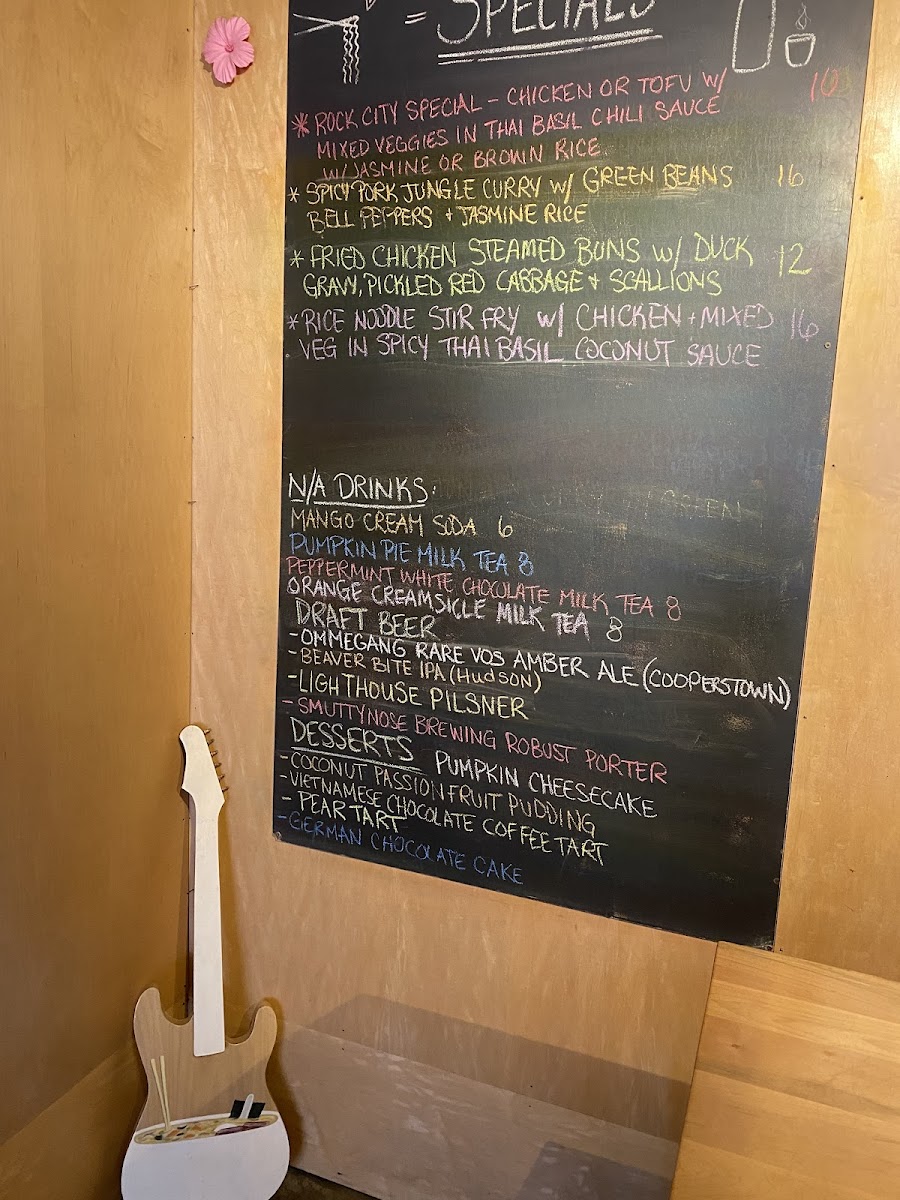 = SPECIALS
* ROCK CITY SPECIAL - CHICKEN OR TOFU W/ 16
MIXED VEGGIES IN THAI BASIL CHILI SAUCE
W/ JASMINE OR BROWN RICE
* SPICY PORK JUNGLE CURRY W/ GREEN BEANS 16
BELL PEPPERS + JASMINE RICE
* FRIED CHICKEN STEAMED BUNS W/ DUCK 12
GRAVY, PICKLED RED CABBAGE + SCALLIONS
* RICE NOODLE STIR FRY W/ CHICKEN + MIXED 16
VEG IN SPICY THAI BASIL COCONUT SAUCE
N/A DRINKS:
MANGO CREAM SODA 6
PUMPKIN PIE MILK TEA 8
PEPPERMINT WHITE CHOCOLATE MILK TEA 8
ORANGE CREAMSICLE MILK TEA 8
DRAFT BEER
- OMMEGANG RARE VOS AMBER ALE (COOPERSTOWN)
- BEAVER BITE IPA (HUDSON)
- LIGHTHOUSE PILSNER
- SMUTTYNOSE BREWING ROBUST PORTER
DESSERTS PUMPKIN CHEESECAKE
- COCONUT PASSIONFRUIT PUDDING
- VIETNAMESE CHOCOLATE COFFEE TART
- PEAR TART
- GERMAN CHOCOLATE CAKE